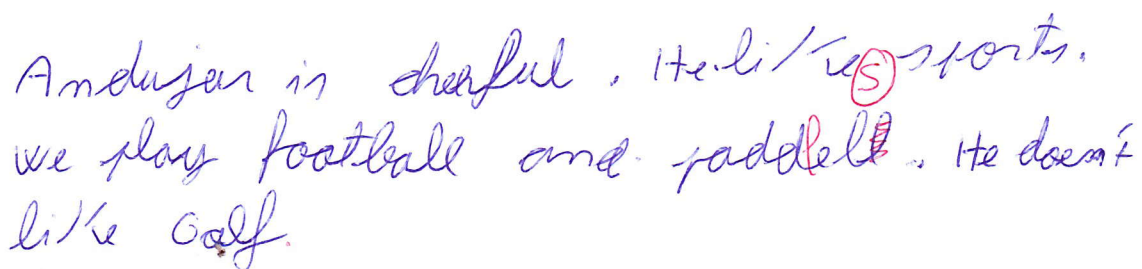 Andujar is cheerful. He likes sports.
we play football and paddle. He doesn't
like Golf.